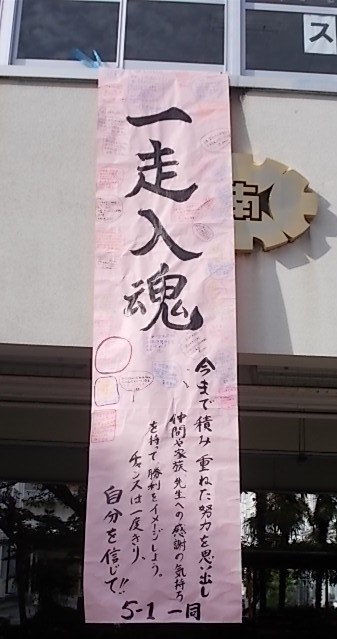 一走入魂
今まで積み重ねた努力を思い出し
仲間や家族、先生への感謝の気持ち
を持て勝利をイメージしよう。
チャンスは一度きり、
自分を信じて!!
5-1 一同
南
ス